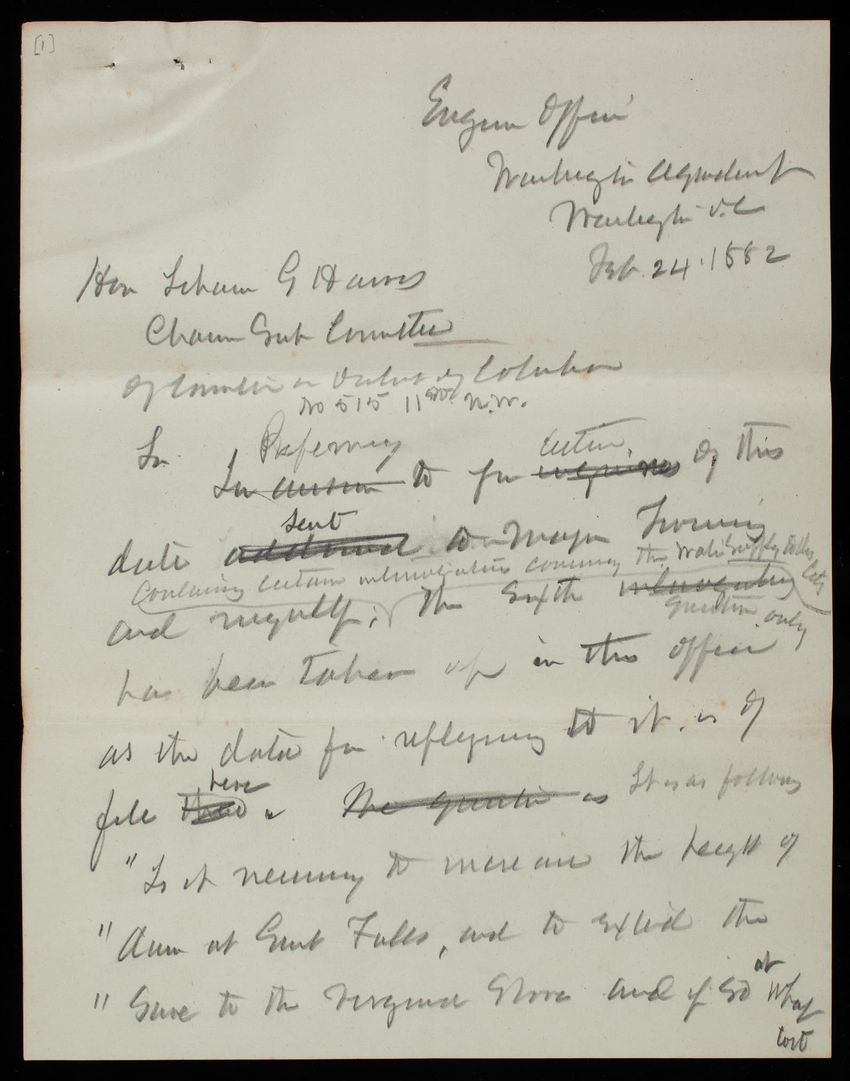 [1]
Engineer Office
Washington Aqueduct
Washington D.C
Feb. 24. 1882
Hon Isham G Harris
Chairm Sub Committee
of Committee on District of Columbia
No 515 11th N.W.
Sir Referring letter,
In answer to your inquiries of this
sent
date addressed to Major Twining
containing certain interrogatories concerning the Water Supply to this City
and myself, the sixth interrogatory
question only
has been taken up in this office
as the data for replying to it, is of
here
file there. The question is It is as follows
" Is it necessary to increase the height of
" dam at Great Falls, and to extend the
at
" same to the Virginia Shore and if so what
cost